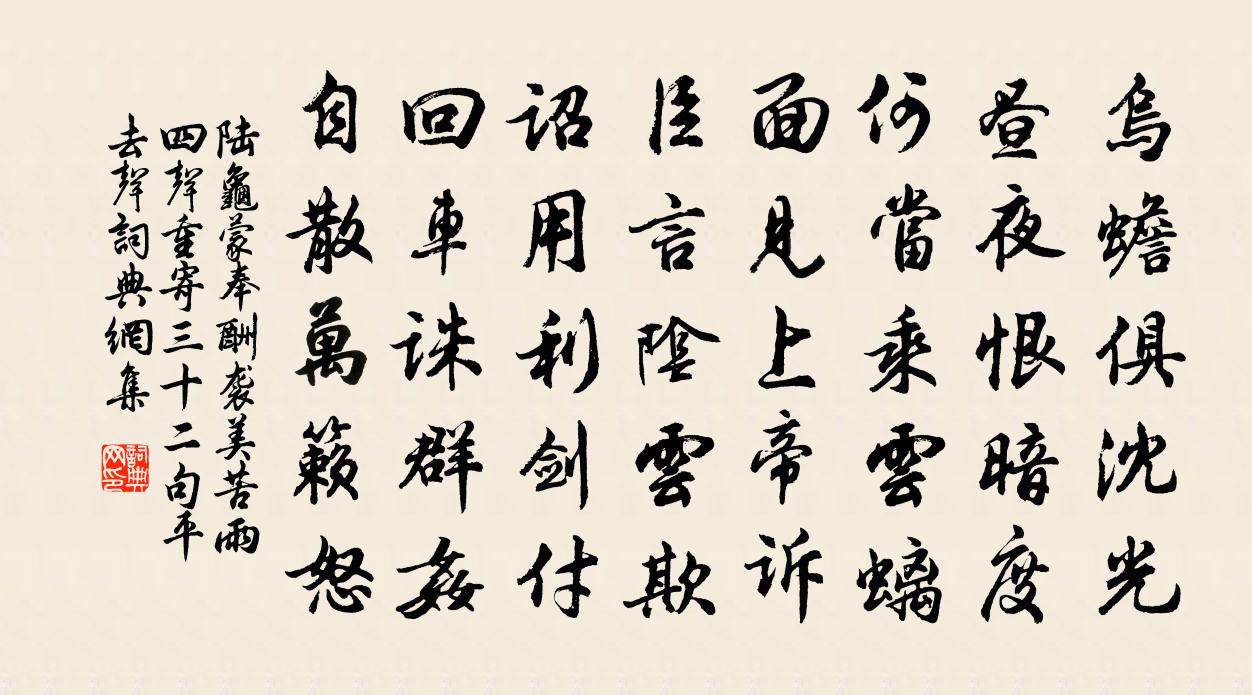 烏蟾俱沈光
晝夜恨暗度
何當乘雲螭
面見上帝訴
臣言陰雲欺
詔用利劍付
回車誅群姦
自散萬籟怒
陸龜蒙奉酬襲美苦雨
四聲重寄三十二句平
去聲詞典網集
詞典网印